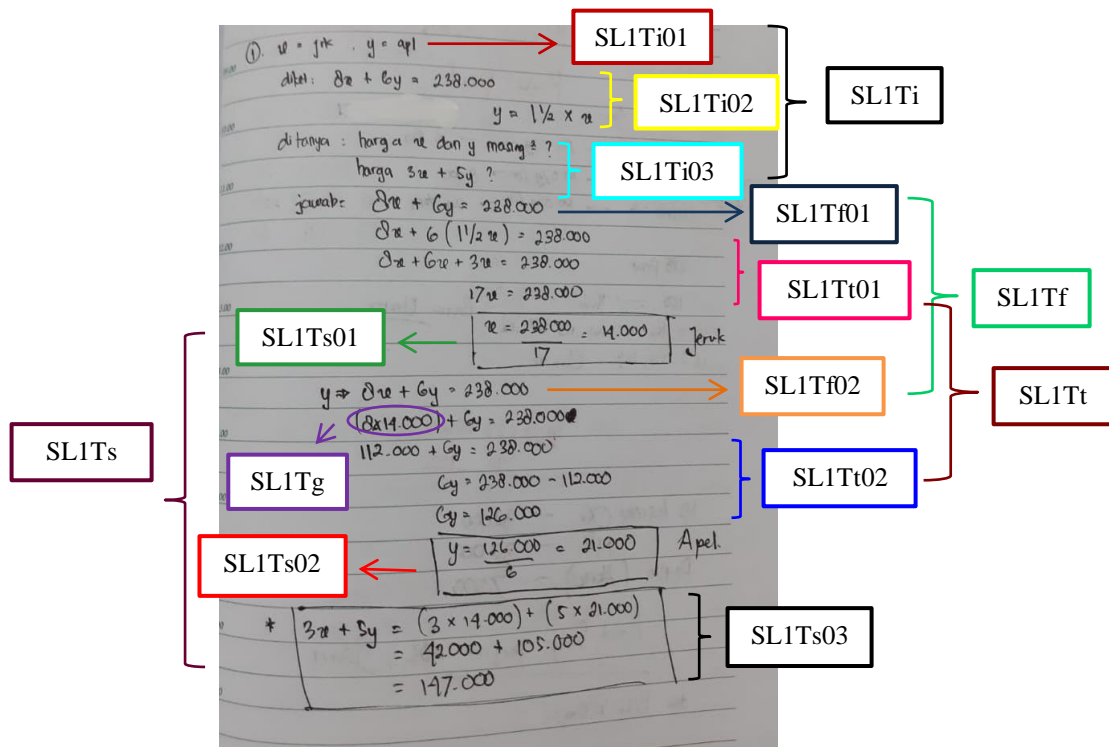 ①. x = jrk . y = apl
SL1Ti01
diket: 8x + 6y = 238.000
y = 1 1/2 × x
SL1Ti02
SL1Ti
ditanya : harga x dan y masing² ?
harga 3x + 5y ?
SL1Ti03
jawab= 8x + 6y = 238.000
SL1Tf01
8x + 6 (1 1/2 x) = 238.000
8x + 6x + 3x = 238.000
17x = 238.000
SL1Tt01
SL1Tf
SL1Ts01
x = 238.000 / 17 = 14.000 Jeruk
y ⇒ 8x + 6y = 238.000
SL1Tf02
SL1Tt
(8x14.000) + 6y = 238.000
SL1Ts
112.000 + 6y = 238.000
SL1Tg
6y = 238.000 - 112.000
6y = 126.000
SL1Tt02
SL1Ts02
y = 126.000 / 6 = 21.000 Apel.
* 3x + 5y = (3 × 14.000) + (5 × 21.000)
= 42.000 + 105.000
= 147.000
SL1Ts03